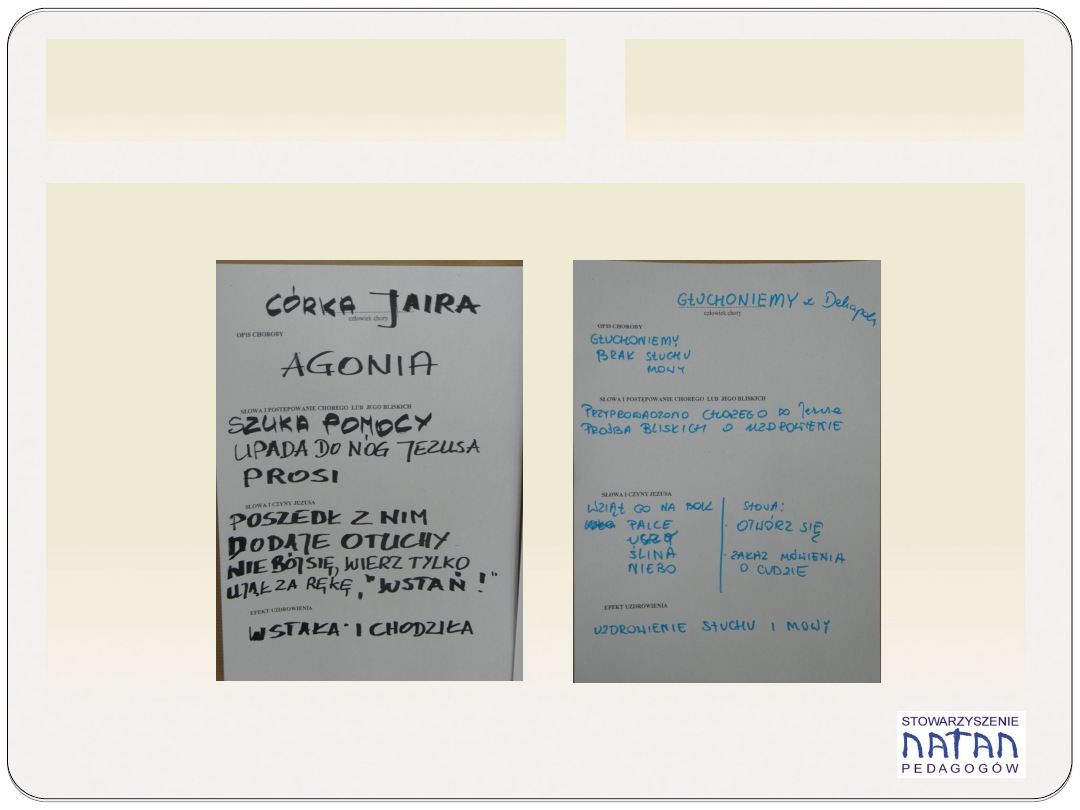 CÓRKA JAIRA
człowiek chory
OPIS CHOROBY
AGONIA
SŁOWA I POSTĘPOWANIE CHOREGO LUB JEGO BLISKICH
SZUKA POMOCY
UPADA DO NÓG JEZUSA
PROSI
SŁOWA I CZYNY JEZUSA
POSZEDŁ Z NIM
DODAJE OTUCHY
NIE BÓJ SIĘ, WIERZ TYLKO
UJĄŁ ZA RĘKĘ, "WSTAŃ!"
EFEKT UZDROWIENIA
WSTAŁA I CHODZIŁA
GŁUCHONIEMY z Dekapolu
człowiek chory
OPIS CHOROBY
GŁUCHONIEMY
BRAK SŁUCHU
MOWY
SŁOWA I POSTĘPOWANIE CHOREGO LUB JEGO BLISKICH
PRZYPROWADZONO CHOREGO do Jezusa
PROŚBA BLISKICH O UZDROWIENIE
SŁOWA I CZYNY JEZUSA
WZIĄŁ GO NA BOK
PALCE
USZY
ŚLINA
NIEBO
SŁOWA:
· OTWÓRZ SIĘ
· ZAKAZ MÓWIENIA
O CUDZIE
EFEKT UZDROWIENIA
UZDROWIENIE SŁUCHU I MOWY
STOWARZYSZENIE
NATAN
PEDAGOGÓW